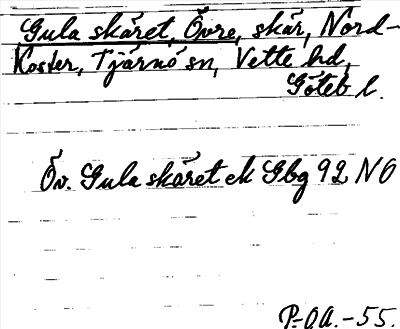 Gula skäret, Övre, skär, Nord-
Koster, Tjärnö sn, Vette hd,
Göteb l.
Öv. Gula skäret ek Gbg 92 NO
P.-OA.-55.